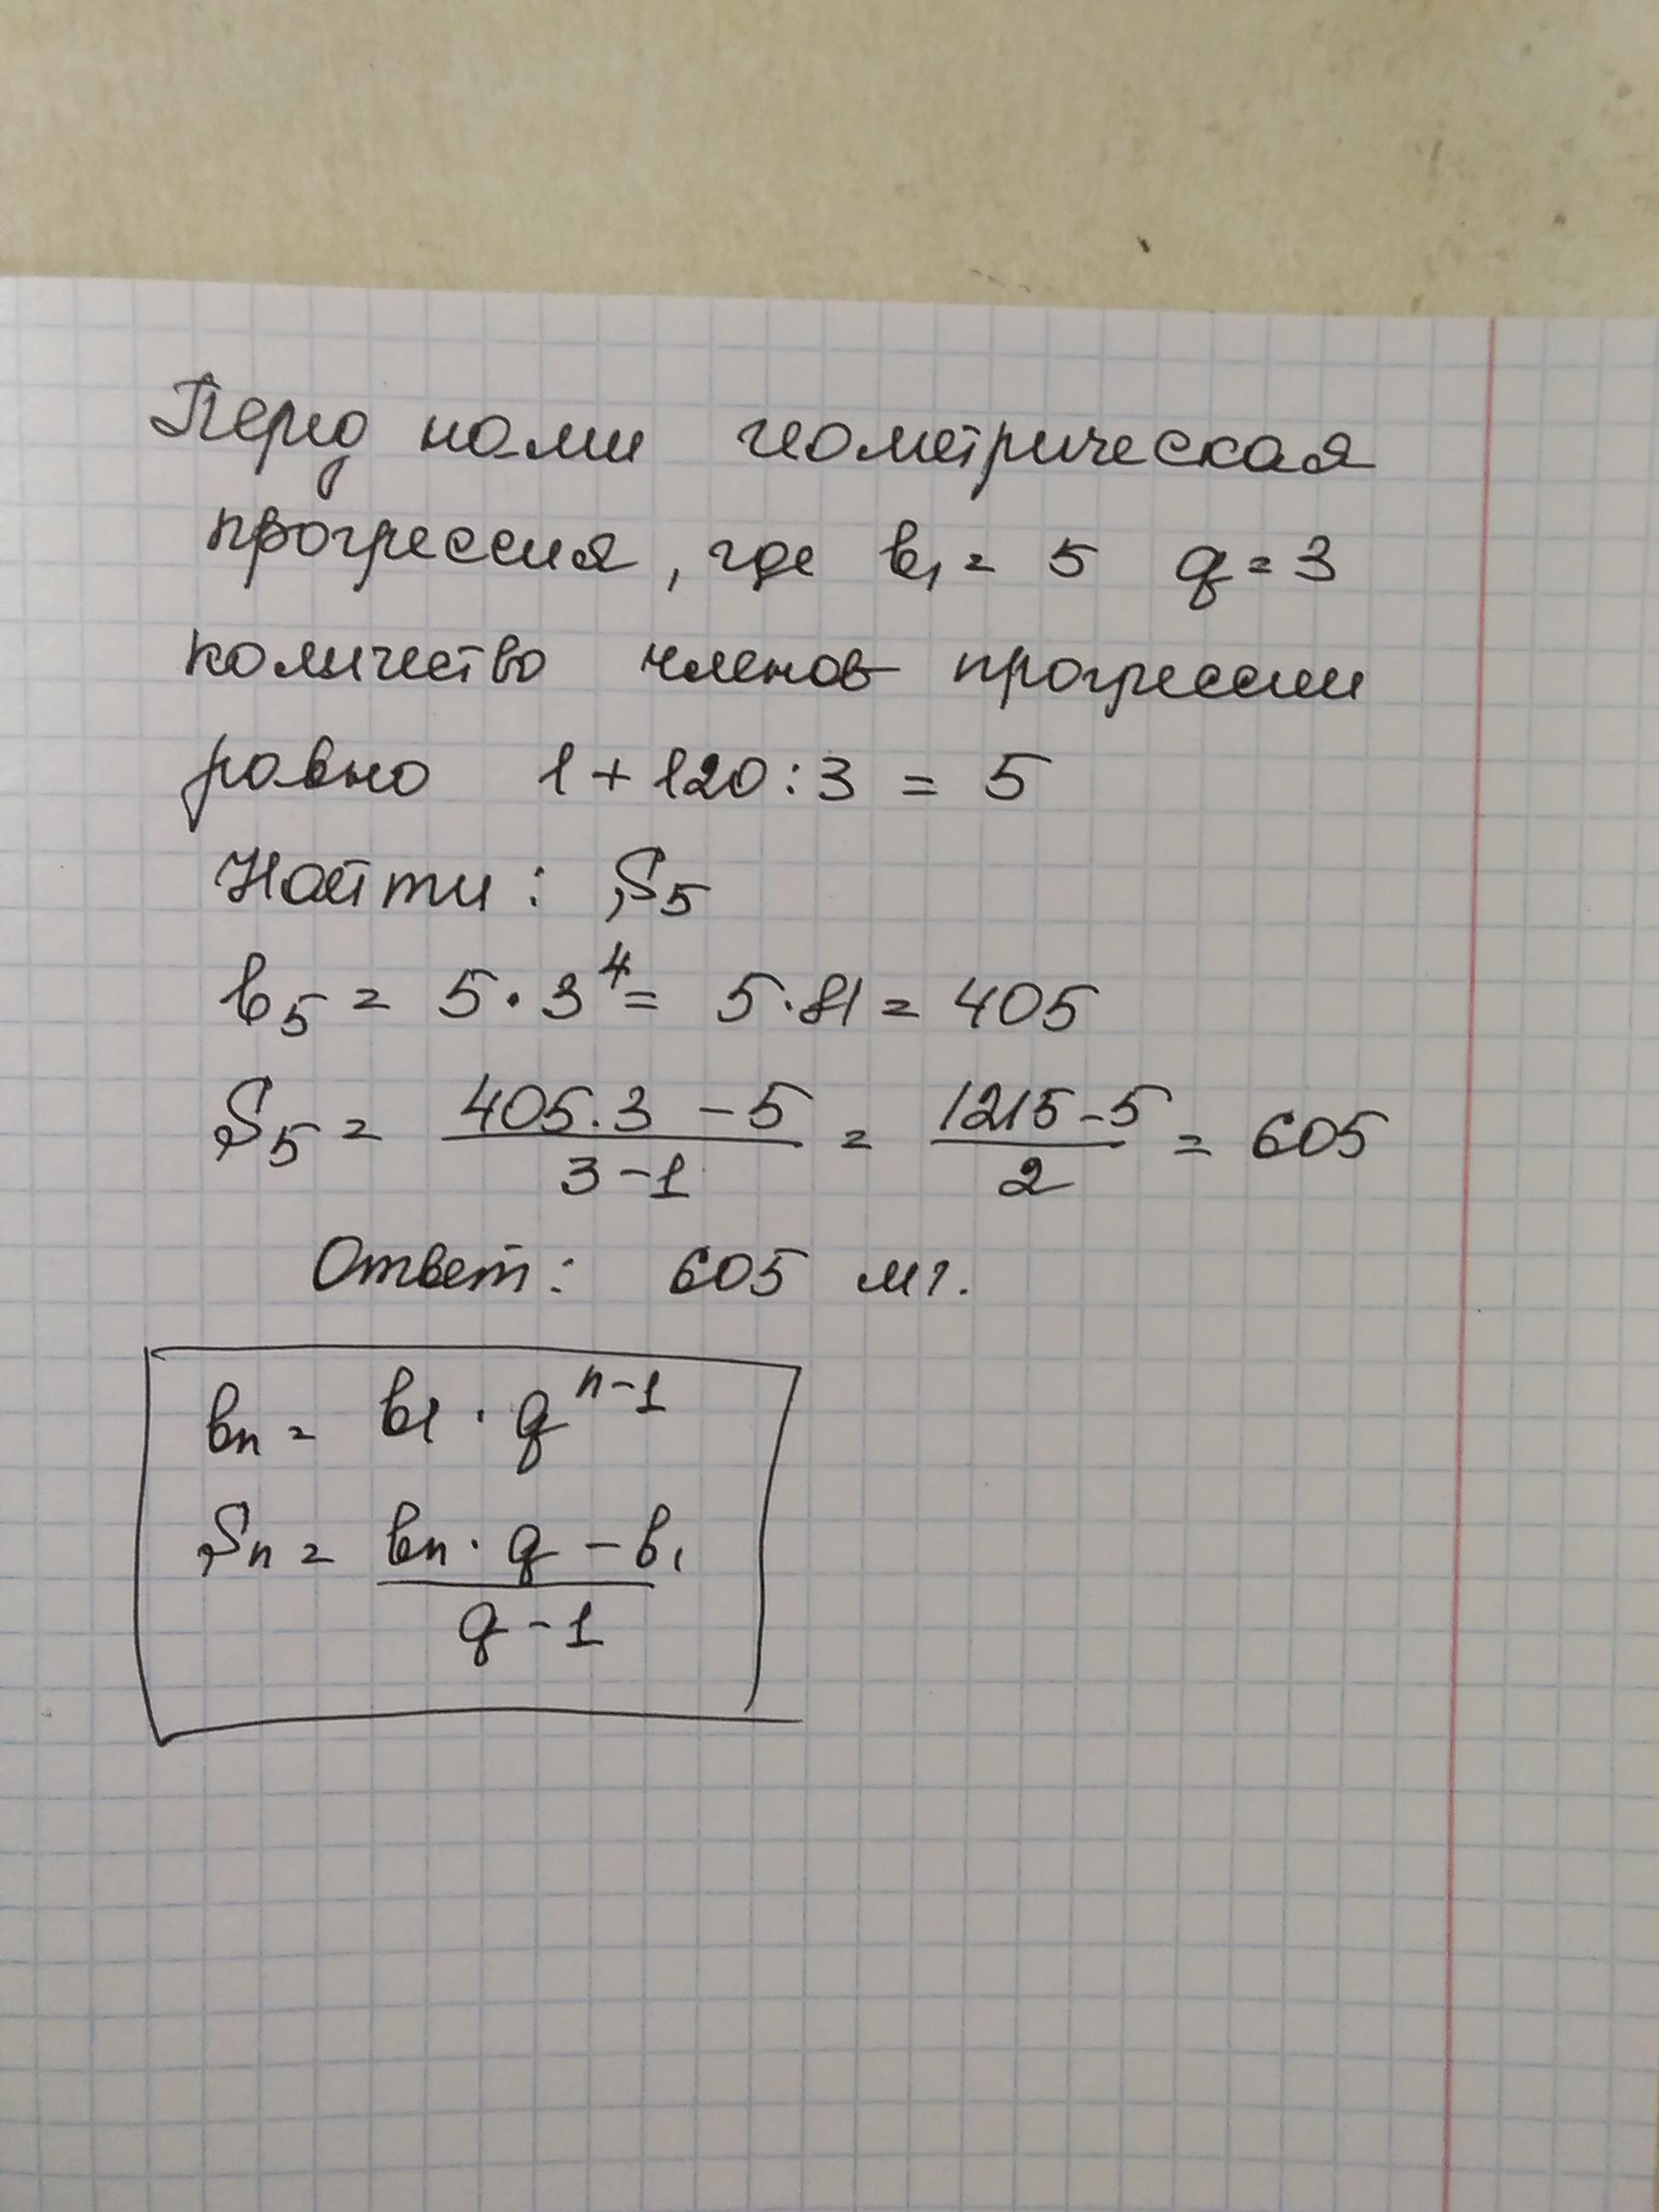 Перед нами геометрическая
прогрессия, где b₁ = 5 q = 3
количество членов прогрессии
равно 1 + 120 : 3 = 5
Найти: S₅
b₅ = 5 · 3⁴ = 5 · 81 = 405
S₅ = (405 · 3 - 5)/(3 - 1) = (1215 - 5)/2 = 605
Ответ: 605 мг.
bₙ = b₁ · qⁿ⁻¹
Sₙ = (bₙ · q - b₁)/(q - 1)